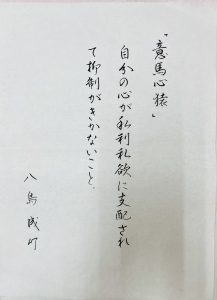 「意馬心猿」
自分の心が私利私欲に支配され
て抑制がきかないこと。
八鳥